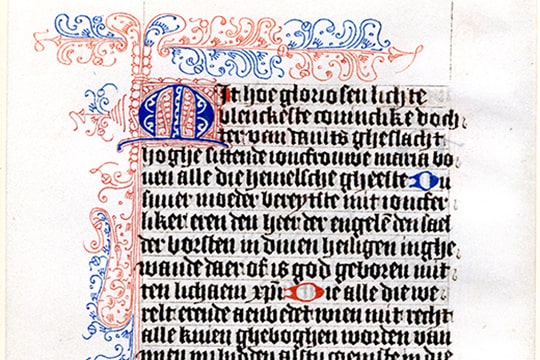 Mit hoe gloriosen lichte
blenckeste coninclike doch
ter van dauits gheslacht
hoghe sittende ioncfrouwe maria bo
uen alle die hemelsche gheeste Du
suuer moeder bereytste mit ioncfer
liker eren den heer der engelē den sael
der borsten in dinen heiligen inghe
wande daer of is god geboren mit
ten lichaem xp̄i Die alle die we
relt eerende aenbedet wien mit recht
alle knien gheboghen worden van
wi bidden in die